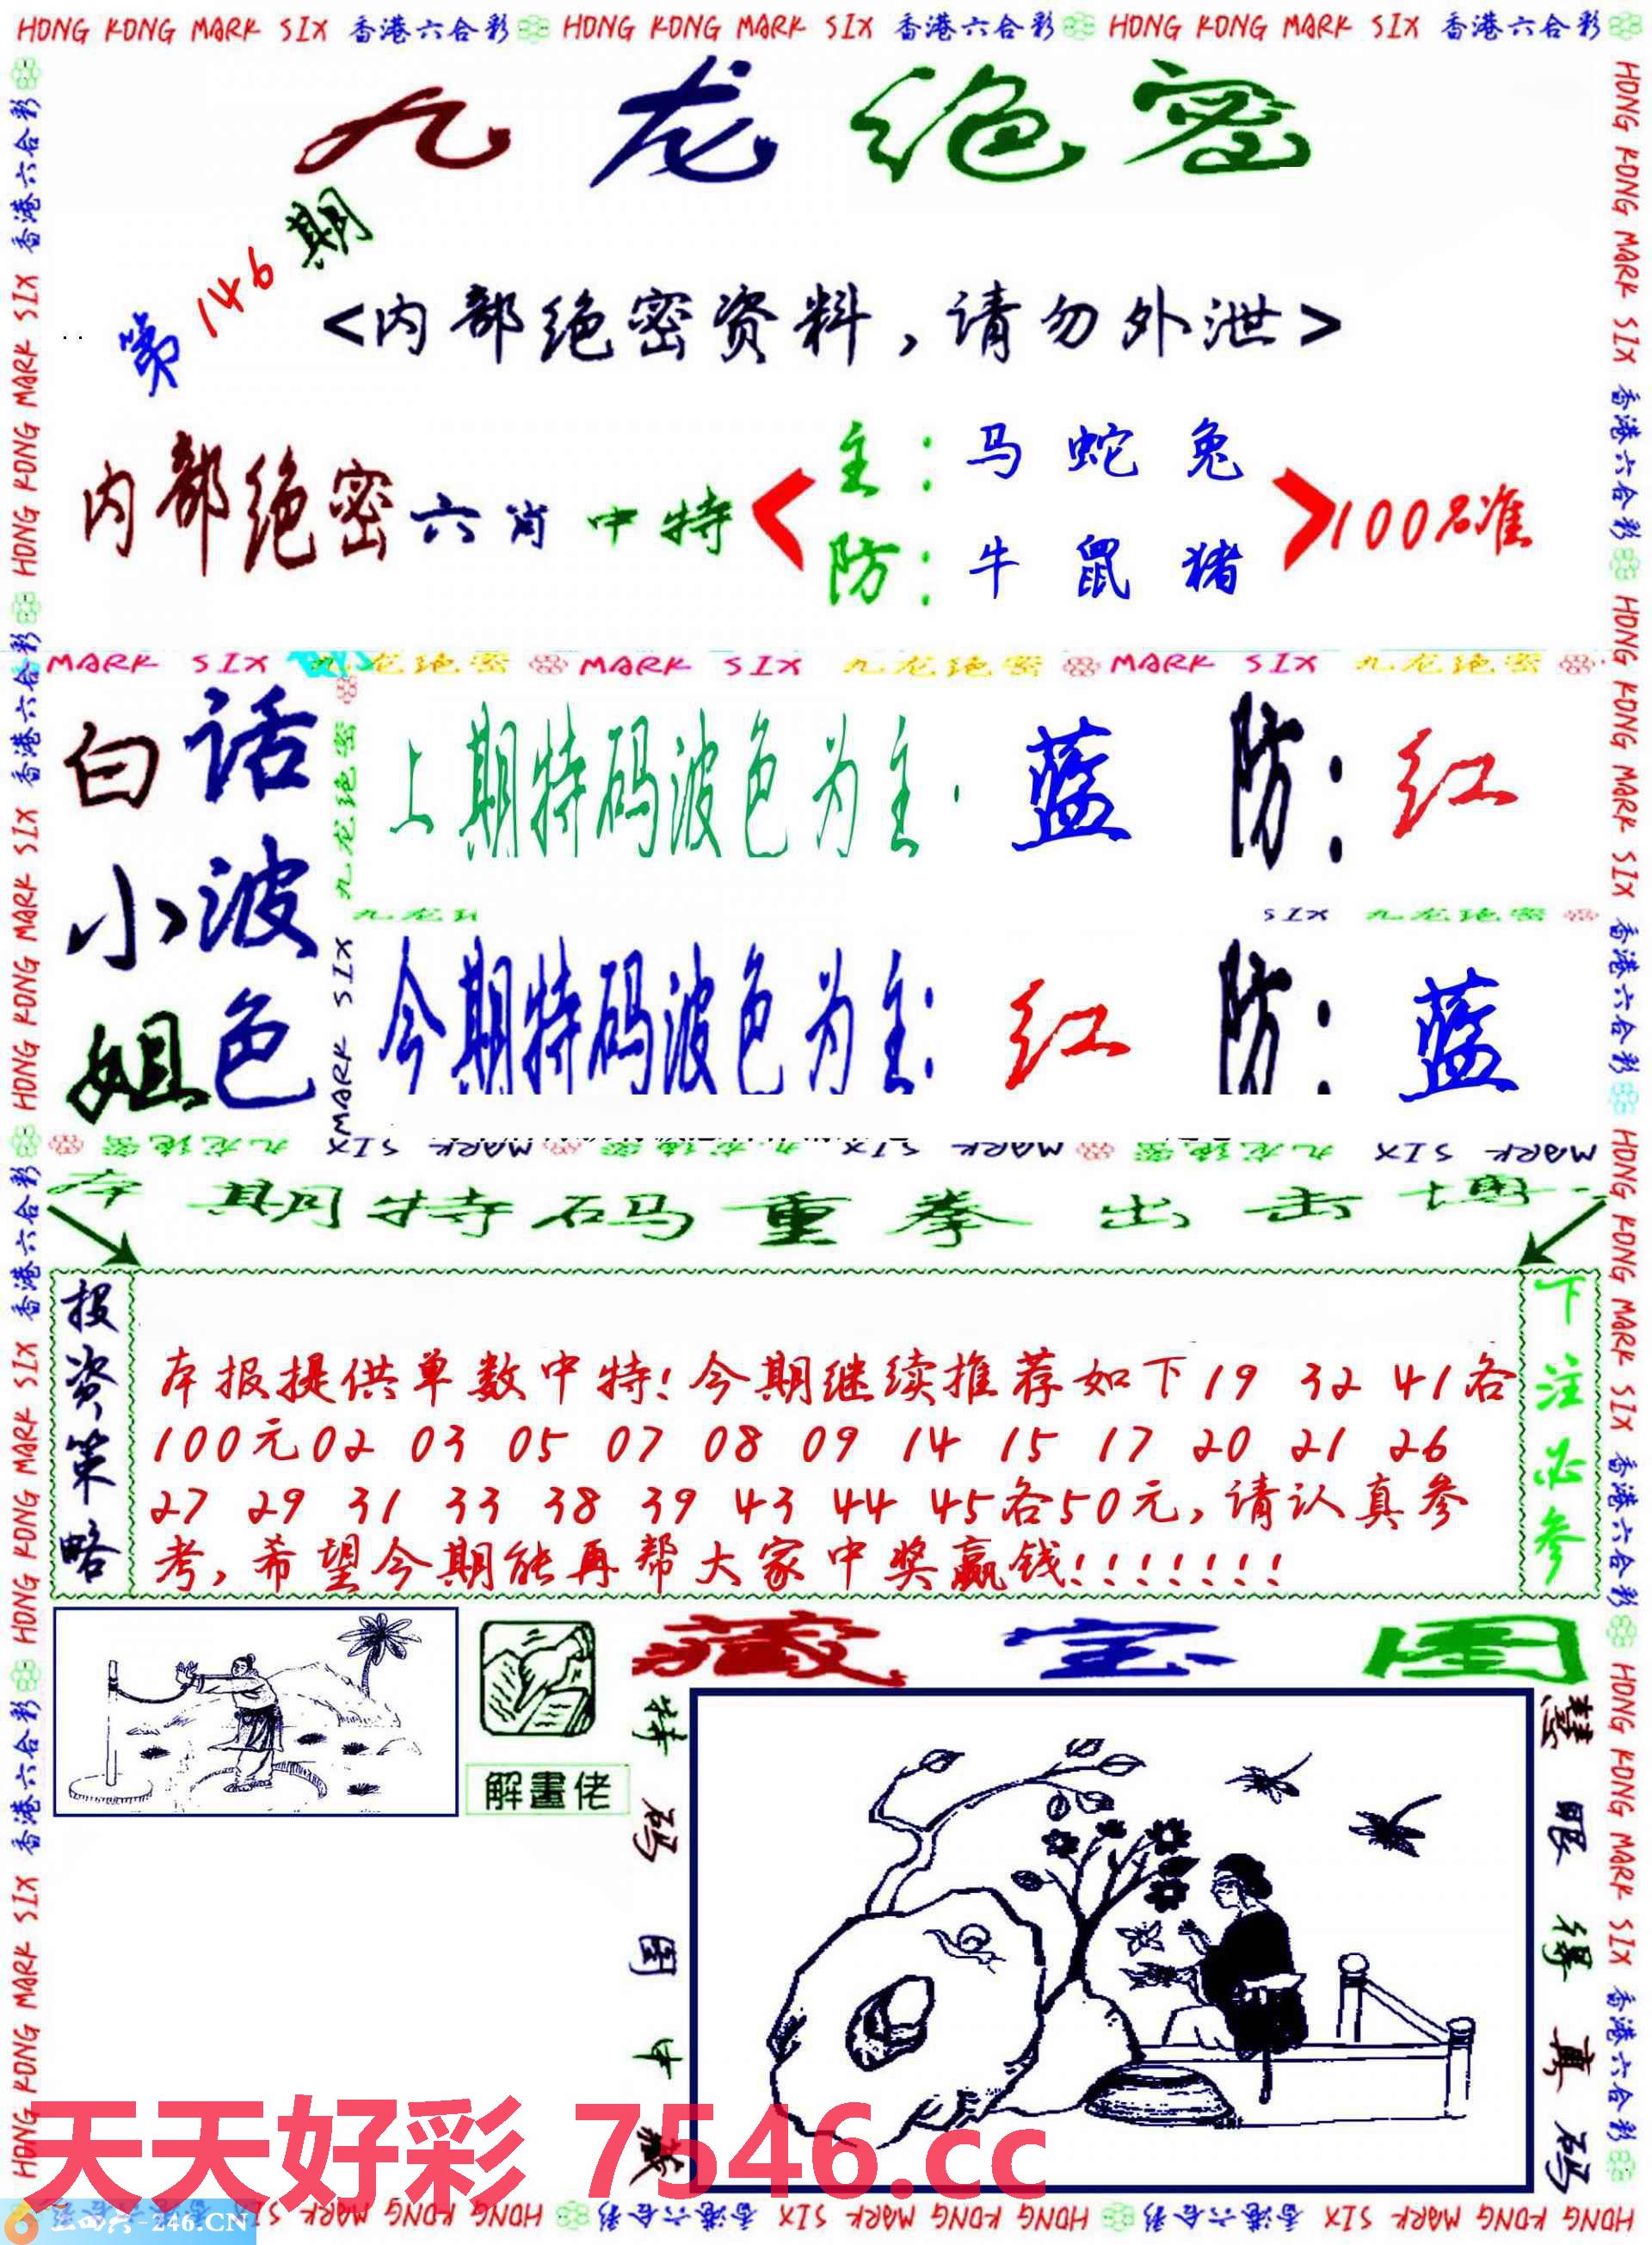 HONG KONG MARK SIX 香港六合彩 HONG KONG MARK SIX 香港六合彩 HONG KONG MARK SIX 香港六合彩
九龙绝密
第146期
<内部绝密资料，请勿外泄>
内部绝密六肖中特
主：马 蛇 兔
防：牛 鼠 猪
100%准
MARK SIX 九龙绝密 MARK SIX 九龙绝密 MARK SIX 九龙绝密
白话
小波
姐色
九龙绝密 MARK SIX
上期特码波色为主·蓝 防：红
SIX 九龙绝密
今期特码波色为主：红 防：蓝
九龙绝密 MARK SIX 九龙绝密 MARK SIX 九龙绝密 MARK SIX
本期特码重拳出击博
投资策略
本报提供单数中特!今期继续推荐如下19 32 41各
100元02 03 05 07 08 09 14 15 17 20 21 26
27 29 31 33 38 39 43 44 45各50元,请认真参
考,希望今期能再帮大家中奖赢钱!!!!!!!
下注必参
解畫佬
藏宝图
特码图中藏
慧眼得真码
天天好彩 7546.cc
-246.CN
HONG KONG MARK SIX 香港六合彩 HONG KONG MARK SIX 香港六合彩 HONG KONG MARK SIX